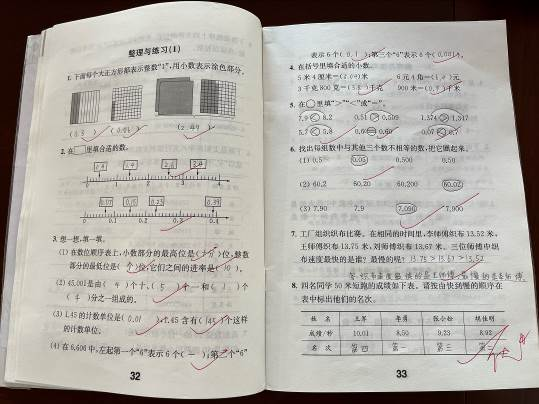 整理与练习(1)
1. 下面每个大正方形都表示整数"1",用小数表示涂色部分。
2. 在□里填合适的数。
0 1 2 3 4
0 0.1 0.2 0.3 0.4
3. 想一想,填一填。
(1) 在数位顺序表上,小数部分的最高位是(十分)位,整数
部分的最低位是(个)位,它们之间的进率是(10)。
(2) 45.001是由(4)个十、(5)个一和(1)个
(3) 1.45的计数单位是(0.01),1.45含有(145)个这样
的计数单位。
(4) 在6.606中,左起第一个"6"表示6个(一),第二个"6"
32
表示6个(0.1),第三个"6"表示6个(0.001)。
4. 在括号里填合适的小数。
5米4厘米=(5.04)米 6元4角=(6.4)元
3千克800克=(3.8)千克 900米=(0.9)千米
5. 在○里填">""<"或"="。
7.9 < 8.2 0.51 > 0.509 1.374 > 1.317
5.7 < 5.8 0.6 = 0.60 0.07 < 0.7
6. 找出每组数中与其他三个数不相等的数,把它圈起来。
(1) 0.5 0.05 0.500 0.50
(2) 60.2 60.20 60.200 60.02
(3) 7.90 7.9 7.090 7.900
7. 工厂组织织布比赛。在相同的时间里,李师傅织布13.52米,
王师傅织布13.75米,刘师傅织布13.67米。三位师傅中织
布速度最快的是谁?最慢的呢? 13.75>13.67>13.52
8. 四名同学50米短跑的成绩如下表。请按由快到慢的顺序在
表中标出他们的名次。
姓名 王军 张小松 胡佳明
成绩/秒 10.01 8.50 9.23 8.92
名次 第四 第一 第三 第二
33